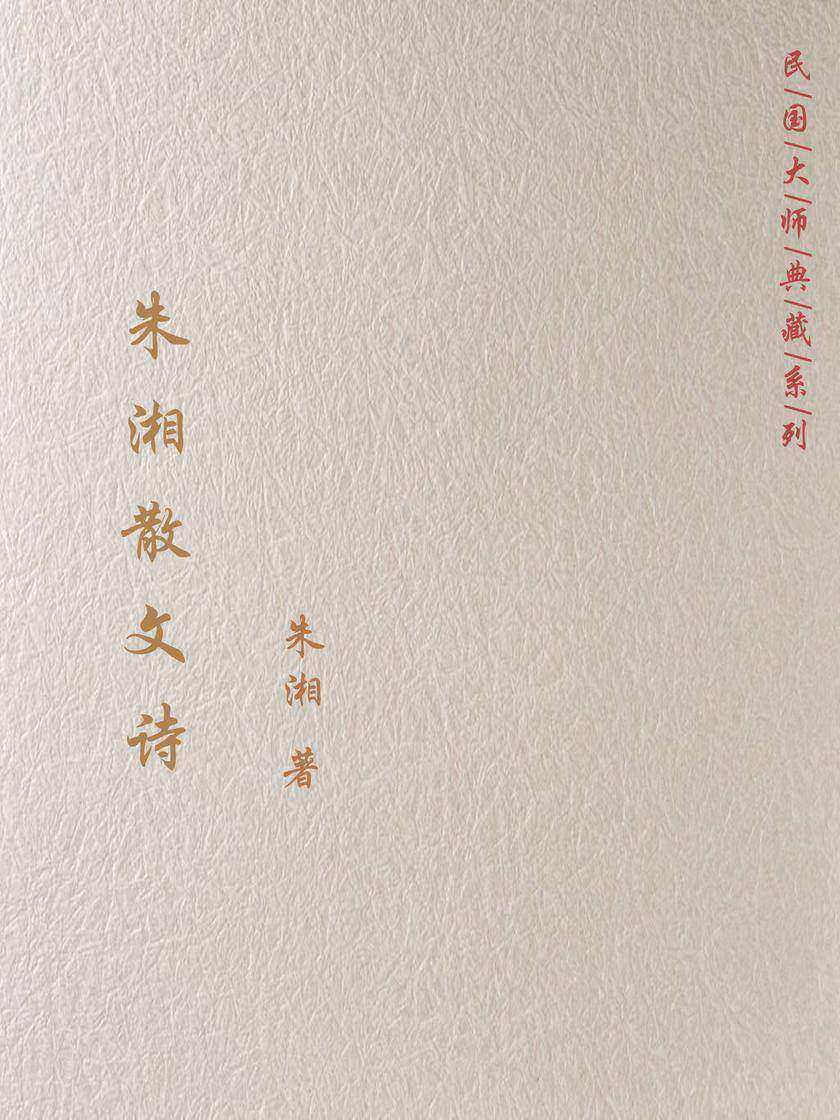 民|国|大|师|典|藏|系|列
朱湘散文诗
朱湘 著